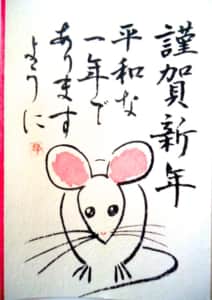 謹賀新年
平和な
一年で
あります
ように